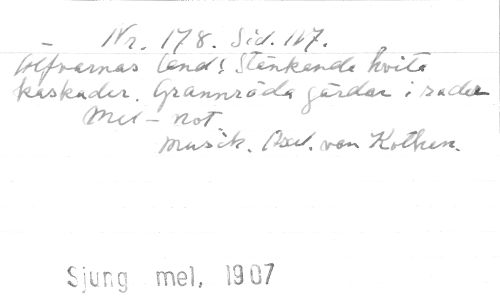 Nr. 178. Sid. 117.
Älfvarnas land! Stänkande hvita
kaskader. Grannröda gårdar i rader
Mel-not
musik. Axel. von Kothen.
Sjung mel, 1907